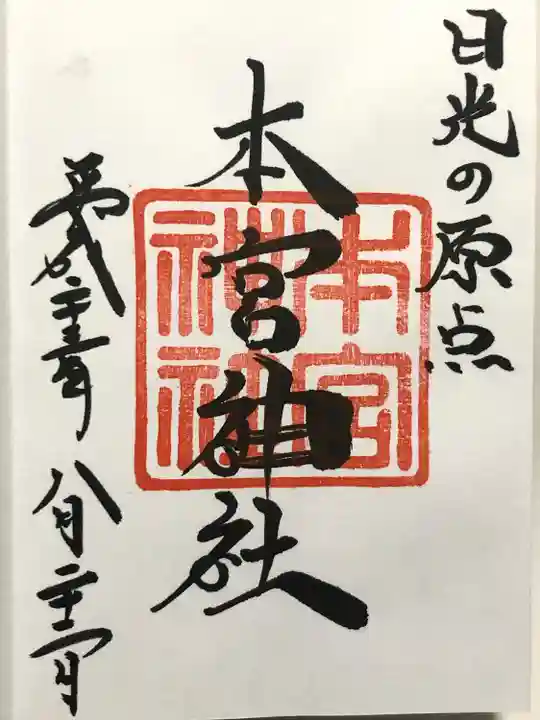 日光の原点
本宮神社
平成二十五年 八月二十四日
本宮神社